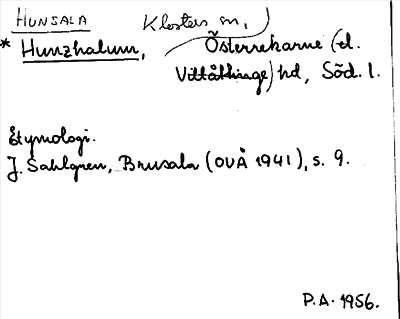 HUNSALA Klosters sn,
* Hunzhalum, Österrekarne (el.
Vittåthinge) hd, Söd. l.
Etymologi.
J. Sahlgren, Brusala (OUÅ 1941), s. 9.
P.A. 1956.